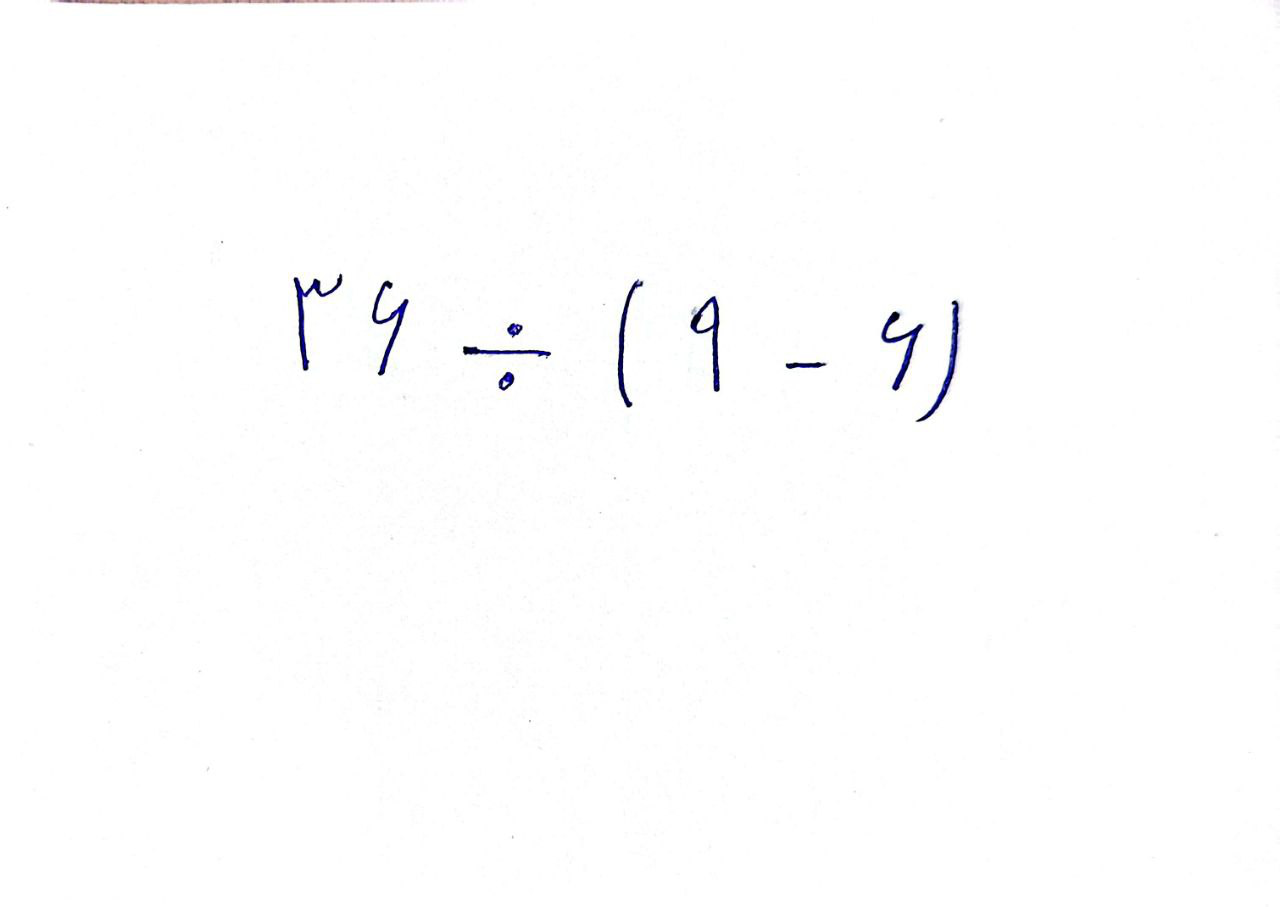 ۳۶ ÷ (۹ - ۶)